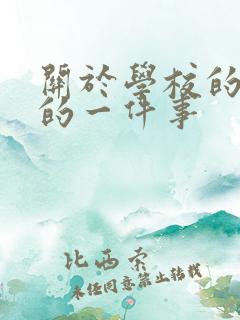 關於學校的
的一件事
比西索
未經同意禁止轉載